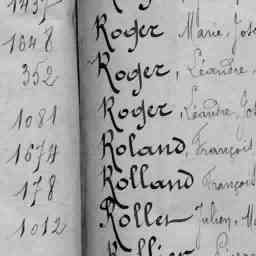 1437
1648 Roger Marie, Jos
352 Roger, Léandre,
1081 Roger, Léandre, Jos
1674 Roland, François
178 Rolland François
1012 Rollet Julien, M